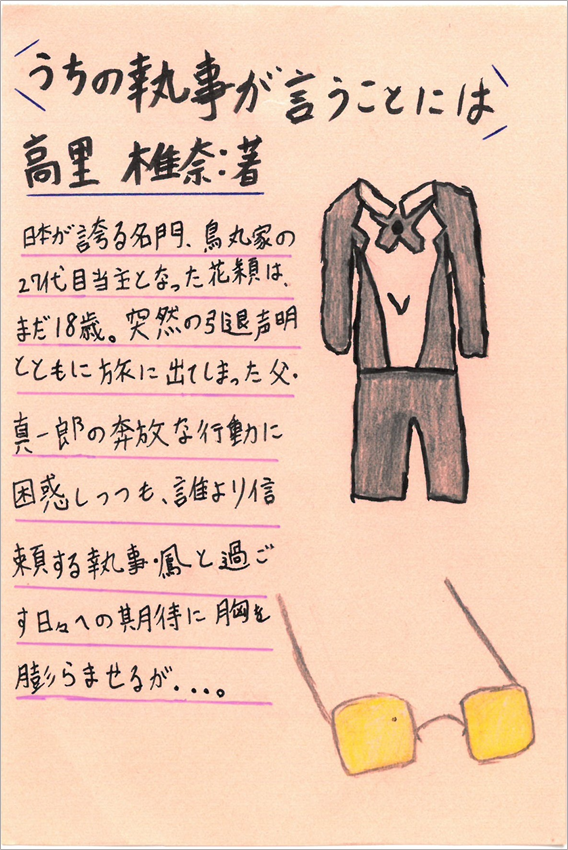 うちの執事が言うことには
高里 椎奈:著
日本が誇る名門、烏丸家の
27代目当主となった花穎は、
まだ18歳。突然の引退声明
とともに旅に出てしまった父・
真一郎の奔放な行動に
困惑しつつも、誰より信
頼する執事・鳳と過ご
す日々への期待に胸を
膨らませるが....。